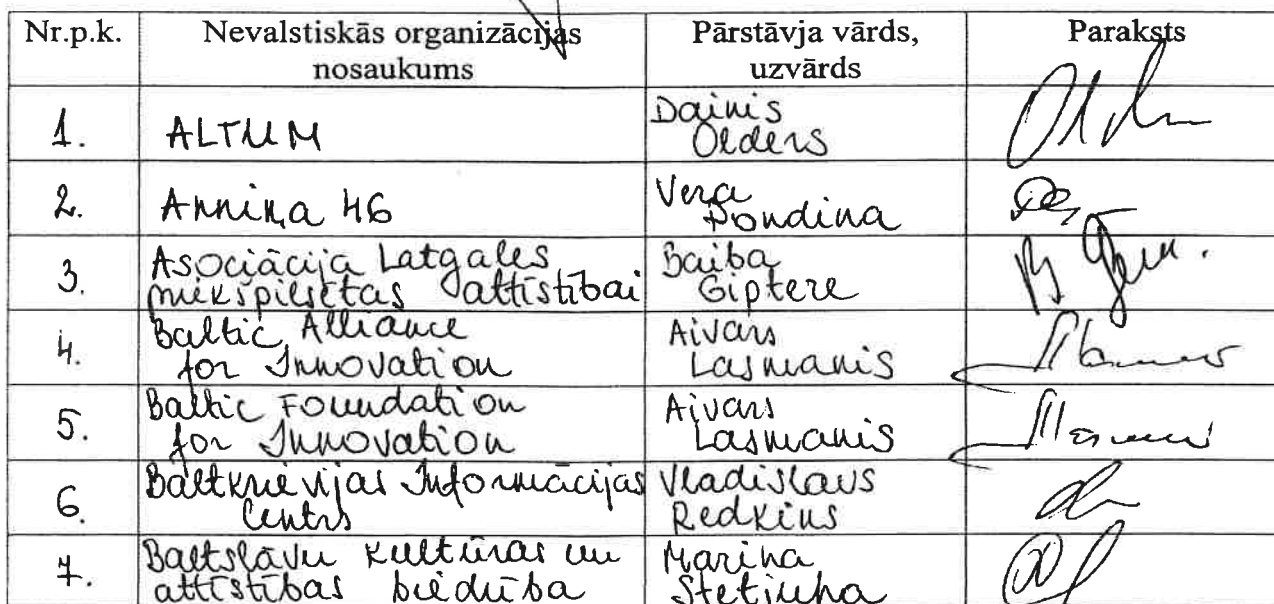 Nr.p.k. Nevalstiskās organizācijas nosaukums Pārstāvja vārds, uzvārds Paraksts
1. ALTUM Dainis Olders
2. Anniņa 46 Vera
3. Asociācija Latgales mikšpilsētas attīstībai Baiba Giptere
4. Baltic Alliance for Innovation Aivars Lasmanis
5. Baltic Foundation for Innovation Aivars Lasmanis
6. Baltkrievijas Informācijas Centrs Vladislavs Redkins
7. Baltslāvu kultūras un attīstības biedrība Marina